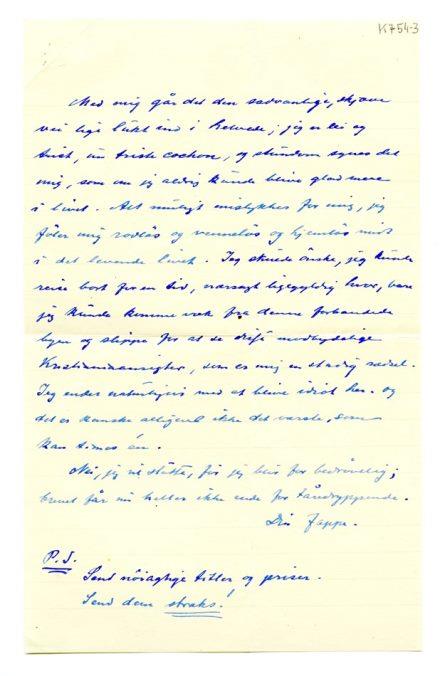 K754-3
Med mig går det den sedvanlige, skjæve
vei lige lukt ind i helvede; jeg er lei og
trist, un triste cochon, og stundom synes det
mig, som om jeg aldrig kunde blive glad mere
i livet. Alt muligt mislykkes for mig, jeg
føler mig rodløs og venneløs og hjemløs midt
i det levende livet. Jeg skulde ønske, jeg kunde
reise bort for en tid, ligegyldig hvor, bare
jeg kunde komme væk fra denne forbandede
byen og slippe for at se disse modbydelige
Kristianiaansigter, som er mig en stadig rædsel.
Jeg ender naturligvis med at blive idiot her. og
det er kanske alligevel ikke det værste, som
kan times én.
Nei, jeg vil slutte, for jeg blir for bedrøvelig;
brevet får nu heller ikke ende for tåredryppende.
Din Jappe.
P.S.
Send nöiagtige titler og priser.
Send dem straks!